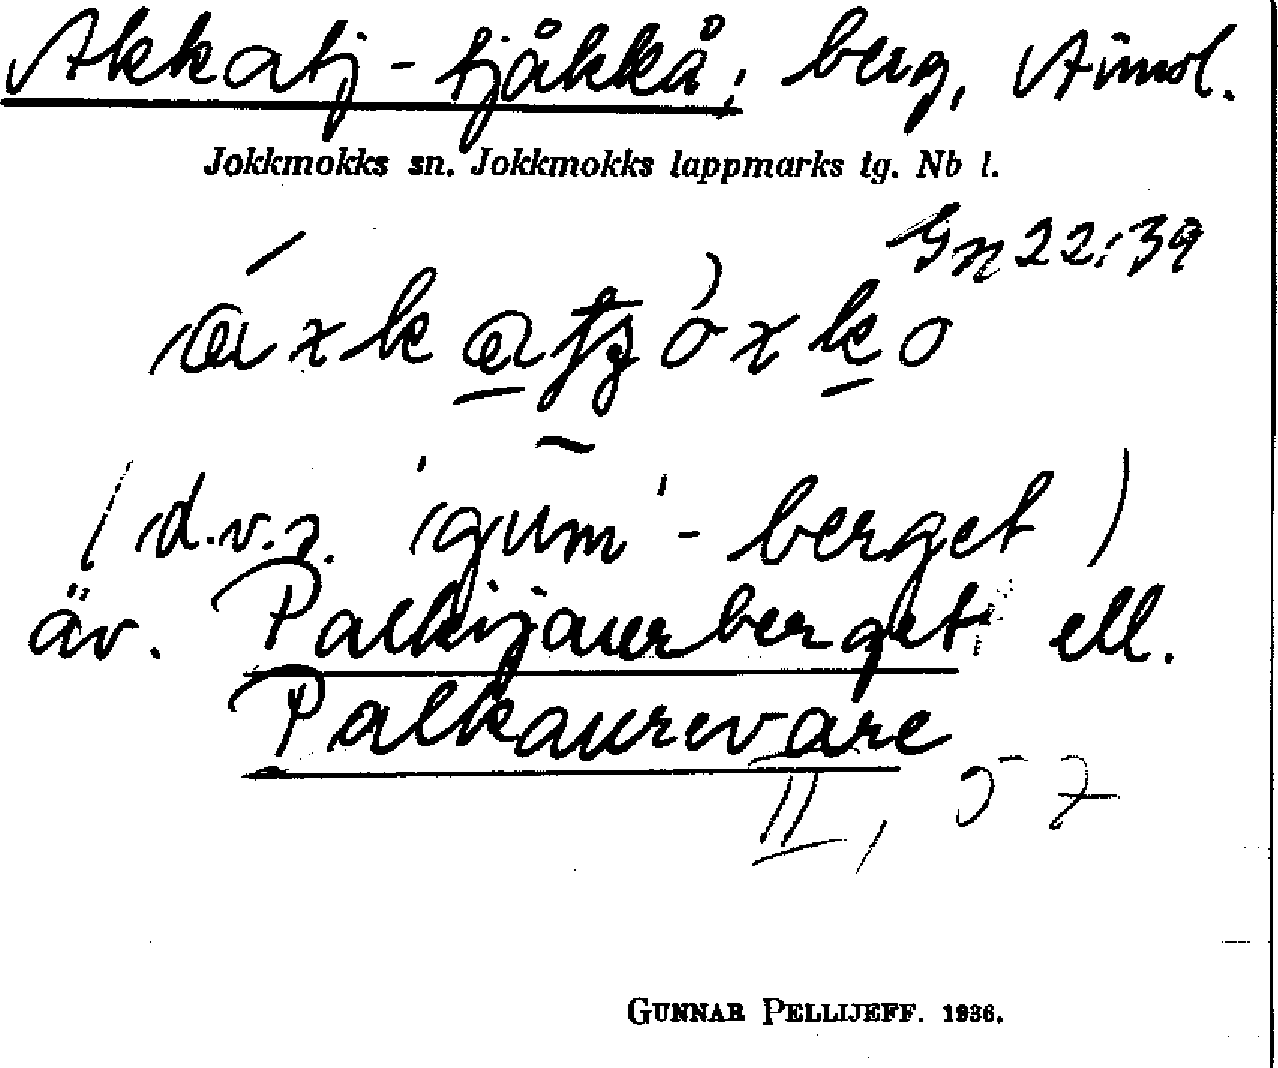 Akkatj-tjåkkå; berg,
Jokkmokks sn. Jokkmokks lappmarks tg. Nb l.
Gn 22:39
(d.v.s. 'gum'-berget)
äv. Palkijaurberget ell.
Palkaurevare
II, 57
GUNNAR PELLIJEFF. 1936.